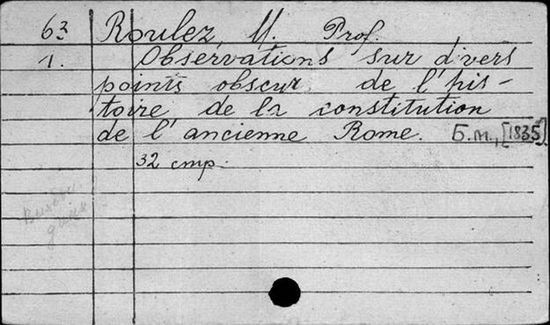 63 Roulez, M. Prof.
1. Observations sur divers
points obscur de l'his-
toire de la constitution
de l'ancienne Rome. Б.м., [1835]
32 стр.